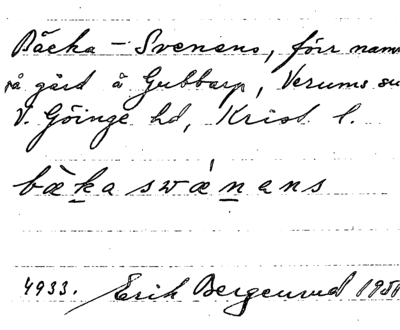 Bäcka - Svenens, förr namn
på gård å Gubbarp, Verums
V. Göinge hd, Krist. l.
bæka swænens
4933. Erik Bergenrud